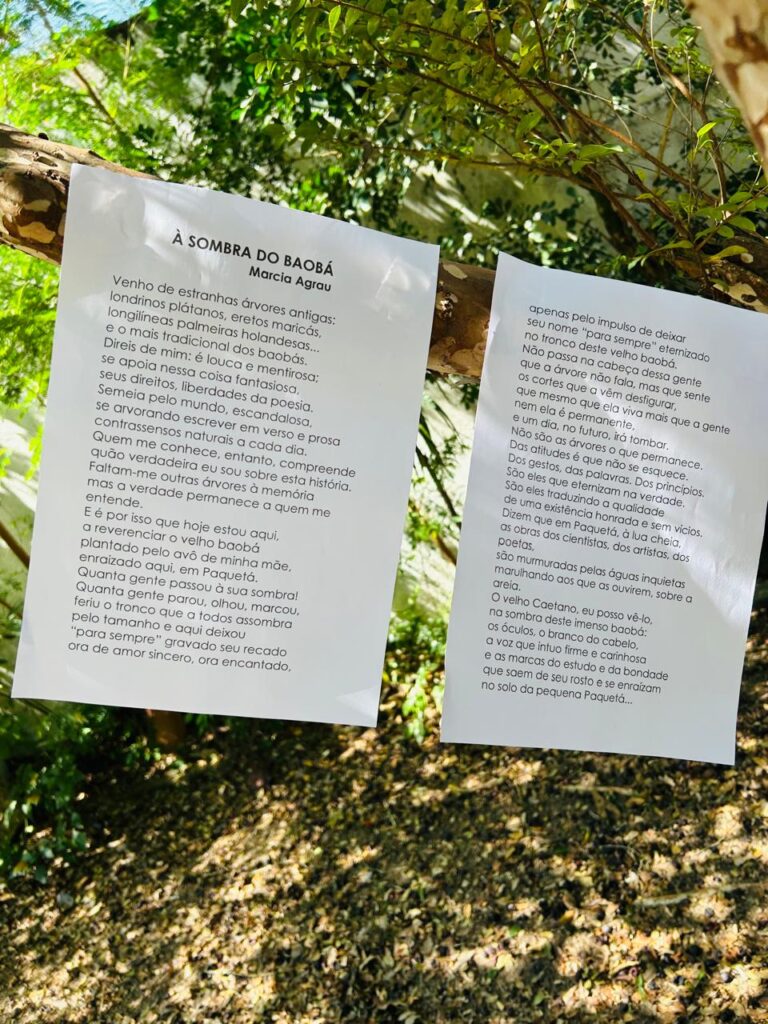 À SOMBRA DO BAOBÁ
Marcia Agrau
Venho de estranhas árvores antigas:
londrinos plátanos, eretos maricás,
longilíneas palmeiras holandesas...
e o mais tradicional dos baobás.
Direis de mim: é louca e mentirosa;
se apoia nessa coisa fantasiosa,
seus direitos, liberdades da poesia.
Semeia pelo mundo, escandalosa,
se arvorando escrever em verso e prosa
contrassensos naturais a cada dia.
Quem me conhece, entanto, compreende
quão verdadeira eu sou sobre esta história.
Faltam-me outras árvores à memória
mas a verdade permanece a quem me
entende.
E é por isso que hoje estou aqui,
a reverenciar o velho baobá
plantado pelo avô de minha mãe,
enraizado aqui, em Paquetá.
Quanta gente passou à sua sombra!
Quanta gente parou, olhou, marcou,
feriu o tronco que a todos assombra
pelo tamanho e aqui deixou
“para sempre” gravado seu recado
ora de amor sincero, ora encantado,
apenas pelo impulso de deixar
seu nome “para sempre” eternizado
no tronco deste velho baobá.
Não passa na cabeça dessa gente
que a árvore não fala, mas que sente
os cortes que a vêm desfigurar,
que mesmo que ela viva mais que a gente
nem ela é permanente,
e um dia, no futuro, irá tombar.
Não são as árvores o que permanece.
Das atitudes é que não se esquece.
Dos gestos, das palavras. Dos princípios.
São eles que eternizam na verdade.
São eles traduzindo a qualidade
de uma existência honrada e sem vícios.
Dizem que em Paquetá, à lua cheia,
as obras dos cientistas, dos artistas, dos
poetas,
são murmuradas pelas águas inquietas
marulhando aos que as ouvirem, sobre a
areia.
O velho Caetano, eu posso vê-lo,
na sombra deste imenso baobá:
os óculos, o branco do cabelo,
a voz que intuo firme e carinhosa
e as marcas do estudo e da bondade
que saem de seu rosto e se enraízam
no solo da pequena Paquetá...